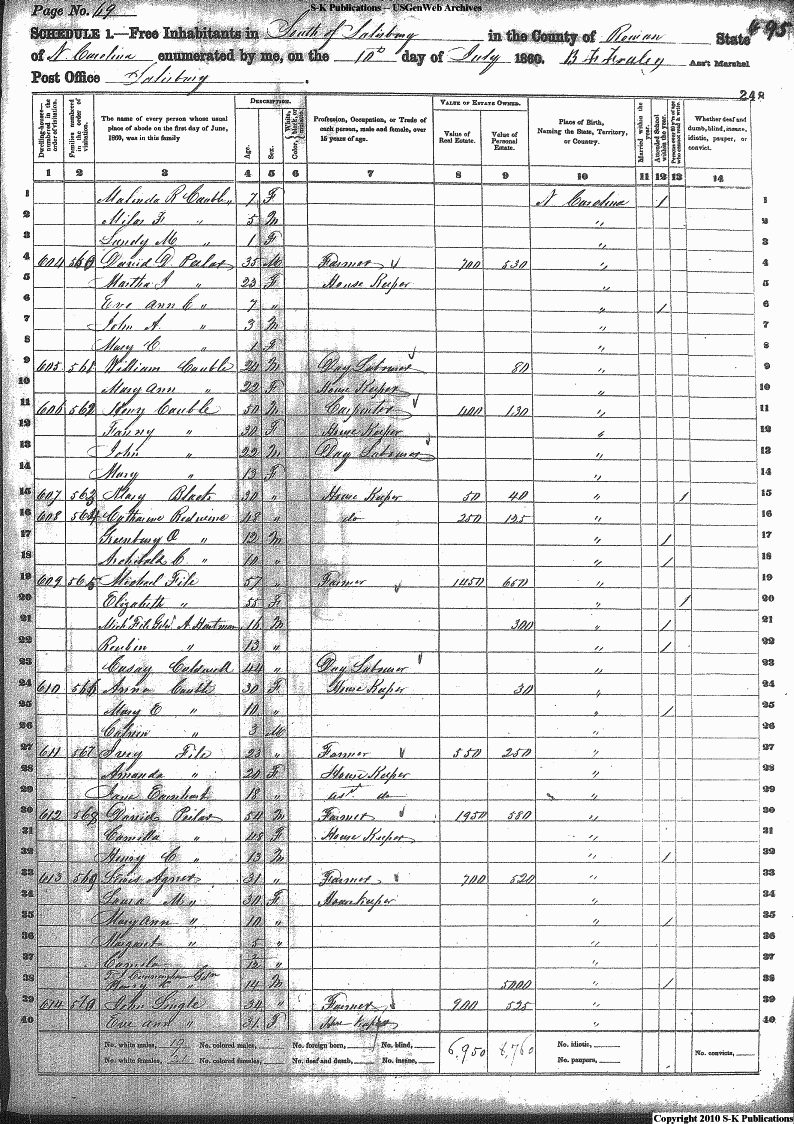 S-K Publications – USGenWeb Archives
Page No. 69
SCHEDULE 1.—Free Inhabitants in South of Salisbury in the County of Rowan State 495
of N. Carolina enumerated by me, on the 10th day of July 1860. B F Fraley Ass't Marshal
Post Office Salisbury.
248
Dwelling-houses—numbered in the order of visitation. Families numbered in the order of visitation. The name of every person whose usual place of abode on the first day of June, 1860, was in this family. DESCRIPTION. Age. Sex. Color, White, black, or mulatto. Profession, Occupation, or Trade of each person, male and female, over 15 years of age. VALUE OF ESTATE OWNED. Value of Real Estate. Value of Personal Estate. Place of Birth, Naming the State, Territory, or Country. Married within the year. Attended School within the year. Persons over 20 y'rs of age who cannot read & write. Whether deaf and dumb, blind, insane, idiotic, pauper, or convict.
1 2 3 4 5 6 7 8 9 10 11 12 13 14
1 Malinda R Cauble 7 F N Carolina / 1
2 Milas F " 5 M " 2
3 Sandy M " 1 F " 3
4 604 560 David D Peeler 35 M Farmer 700 530 " 4
5 Martha J " 23 F House Keeper " 5
6 Eve Ann C " 7 " " / 6
7 John A. " 3 M " 7
8 Mary C " 1 F " 8
9 605 561 William Cauble 24 M Day Labourer 80 " 9
10 Mary Ann " 22 F House Keeper " 10
11 606 562 Henry Cauble 50 M Carpenter 400 130 " 11
12 Fanny " 30 F House Keeper " 12
13 John " 22 M Day Labourer " 13
14 Mary " 13 F " 14
15 607 563 Mary Black 30 " House Keeper 50 40 " / 15
16 608 564 Catharine Redwine 48 " do 250 125 " 16
17 Greenbury O " 12 M " / 17
18 Archibald C. " 10 " " / 18
19 609 565 Michael File 57 " Farmer 1450 650 " 19
20 Elizabeth " 55 F " / 20
21 A Hartman 16 M 300 " / 21
22 Reubin " 13 " " / 22
23 Caldwell 44 " Day Labourer " 23
24 610 566 Anna Cauble 30 F House Keeper 30 " 24
25 Mary E " 10 " " / 25
26 Calvin " 3 M " 26
27 611 567 File 23 " Farmer 550 250 " 27
28 Amanda " 20 F House Keeper " 28
29 Jane Earnhart 18 " do " 29
30 612 568 David Peeler 54 M Farmer 1950 580 " 30
31 Camilla " 48 F House Keeper " 31
32 Henry C " 13 M " / 32
33 613 569 Lewis Agner 31 " Farmer 700 520 " 33
34 Laura M " 30 F House keeper " 34
35 Mary Ann " 10 " " / 35
36 Margaret " 5 " " 36
37 Camila " " " 37
38 Cunningham
Henry K " 14 M 5000 " / 38
39 614 570 John Lingle 34 " Farmer 900 525 " 39
40 Eve Ann " 31 F House Keeper " 40
No. white males, 19 No. colored males, No. foreign born, No. blind, 6,950 8,760 No. idiotic,
No. white females, 21 No. colored females, No. deaf and dumb, No. insane, No. paupers, No. convicts,
Copyright 2010 S-K Publications